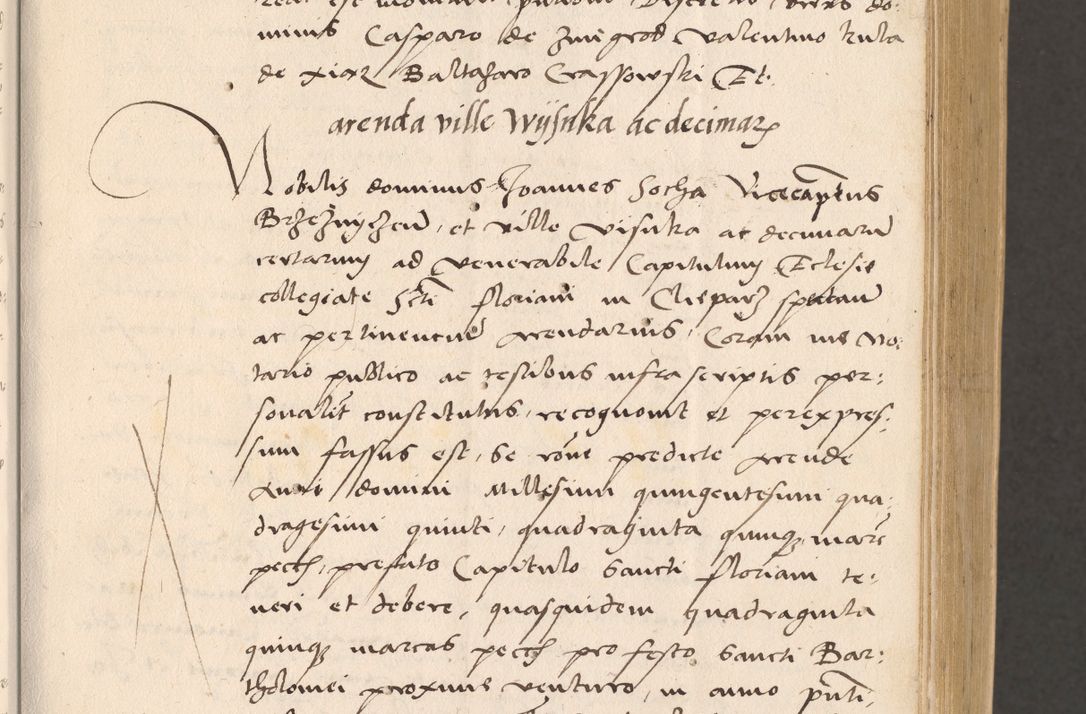 minis Casparo de Zmigrod Valentino Kula
de xiaz Baltazaro Crassowski Et.
arenda ville Wijsnka ac decimar
Nobilis dominus Joannes Socha Vicecapteus
et ville Visnka ac decimarum
certarum ad Venerabile Capitulum Eclesie
collegiate Scti Floriani in Cleparz spectan
ac pertinencium Arendarius, Coram me No:
tario publico ac testibus infra scriptis per:
sonalit constitutus, recognouit et per expres:
sum fassus est, se rone predicte Arende
Anni domini Millesimi quingentesimi qua:
dragesimi quinti, quadraginta quinq marc
pecch, prefato Capitulo Sancti Floriani te:
neri et debere, quasquidem quadraginta
quinq marcas pecch pro festo Sancti Bar:
tholomei proxime venturo, in anno pnti,